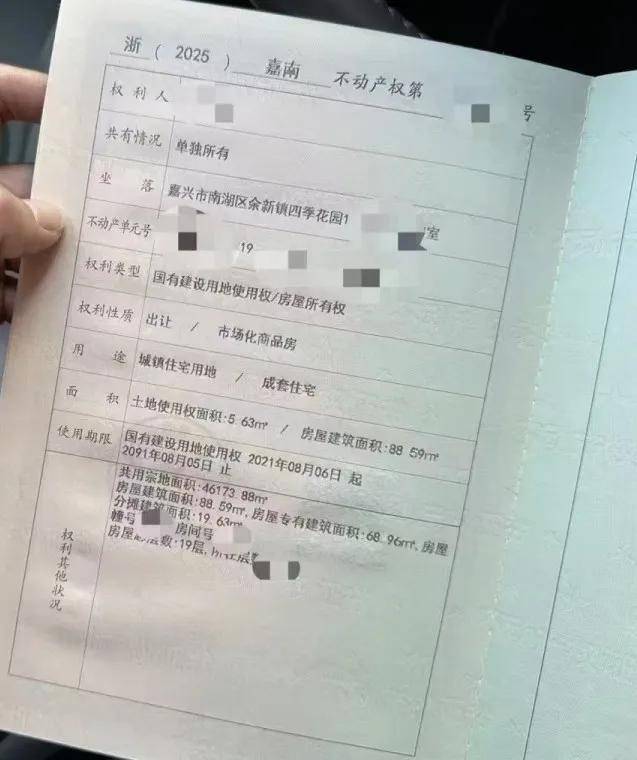 浙 ( 2025 ) 嘉南 不动产权第 号
权利人
共有情况 单独所有
坐落 嘉兴市南湖区余新镇四季花园1 室
不动产单元号 19
权利类型 国有建设用地使用权/房屋所有权
权利性质 出让 / 市场化商品房
用途 城镇住宅用地 / 成套住宅
面积 土地使用权面积:5 63㎡ / 房屋建筑面积:88 59㎡
使用期限 国有建设用地使用权 2021年08月06日 起
2091年08月05日 止
权利其他状况
共用宗地面积:46173 88㎡
房屋建筑面积:88.59㎡,房屋专有建筑面积:68.96㎡,房屋
分摊建筑面积:19.63㎡
幢号 房间号
房屋 层数:19层,